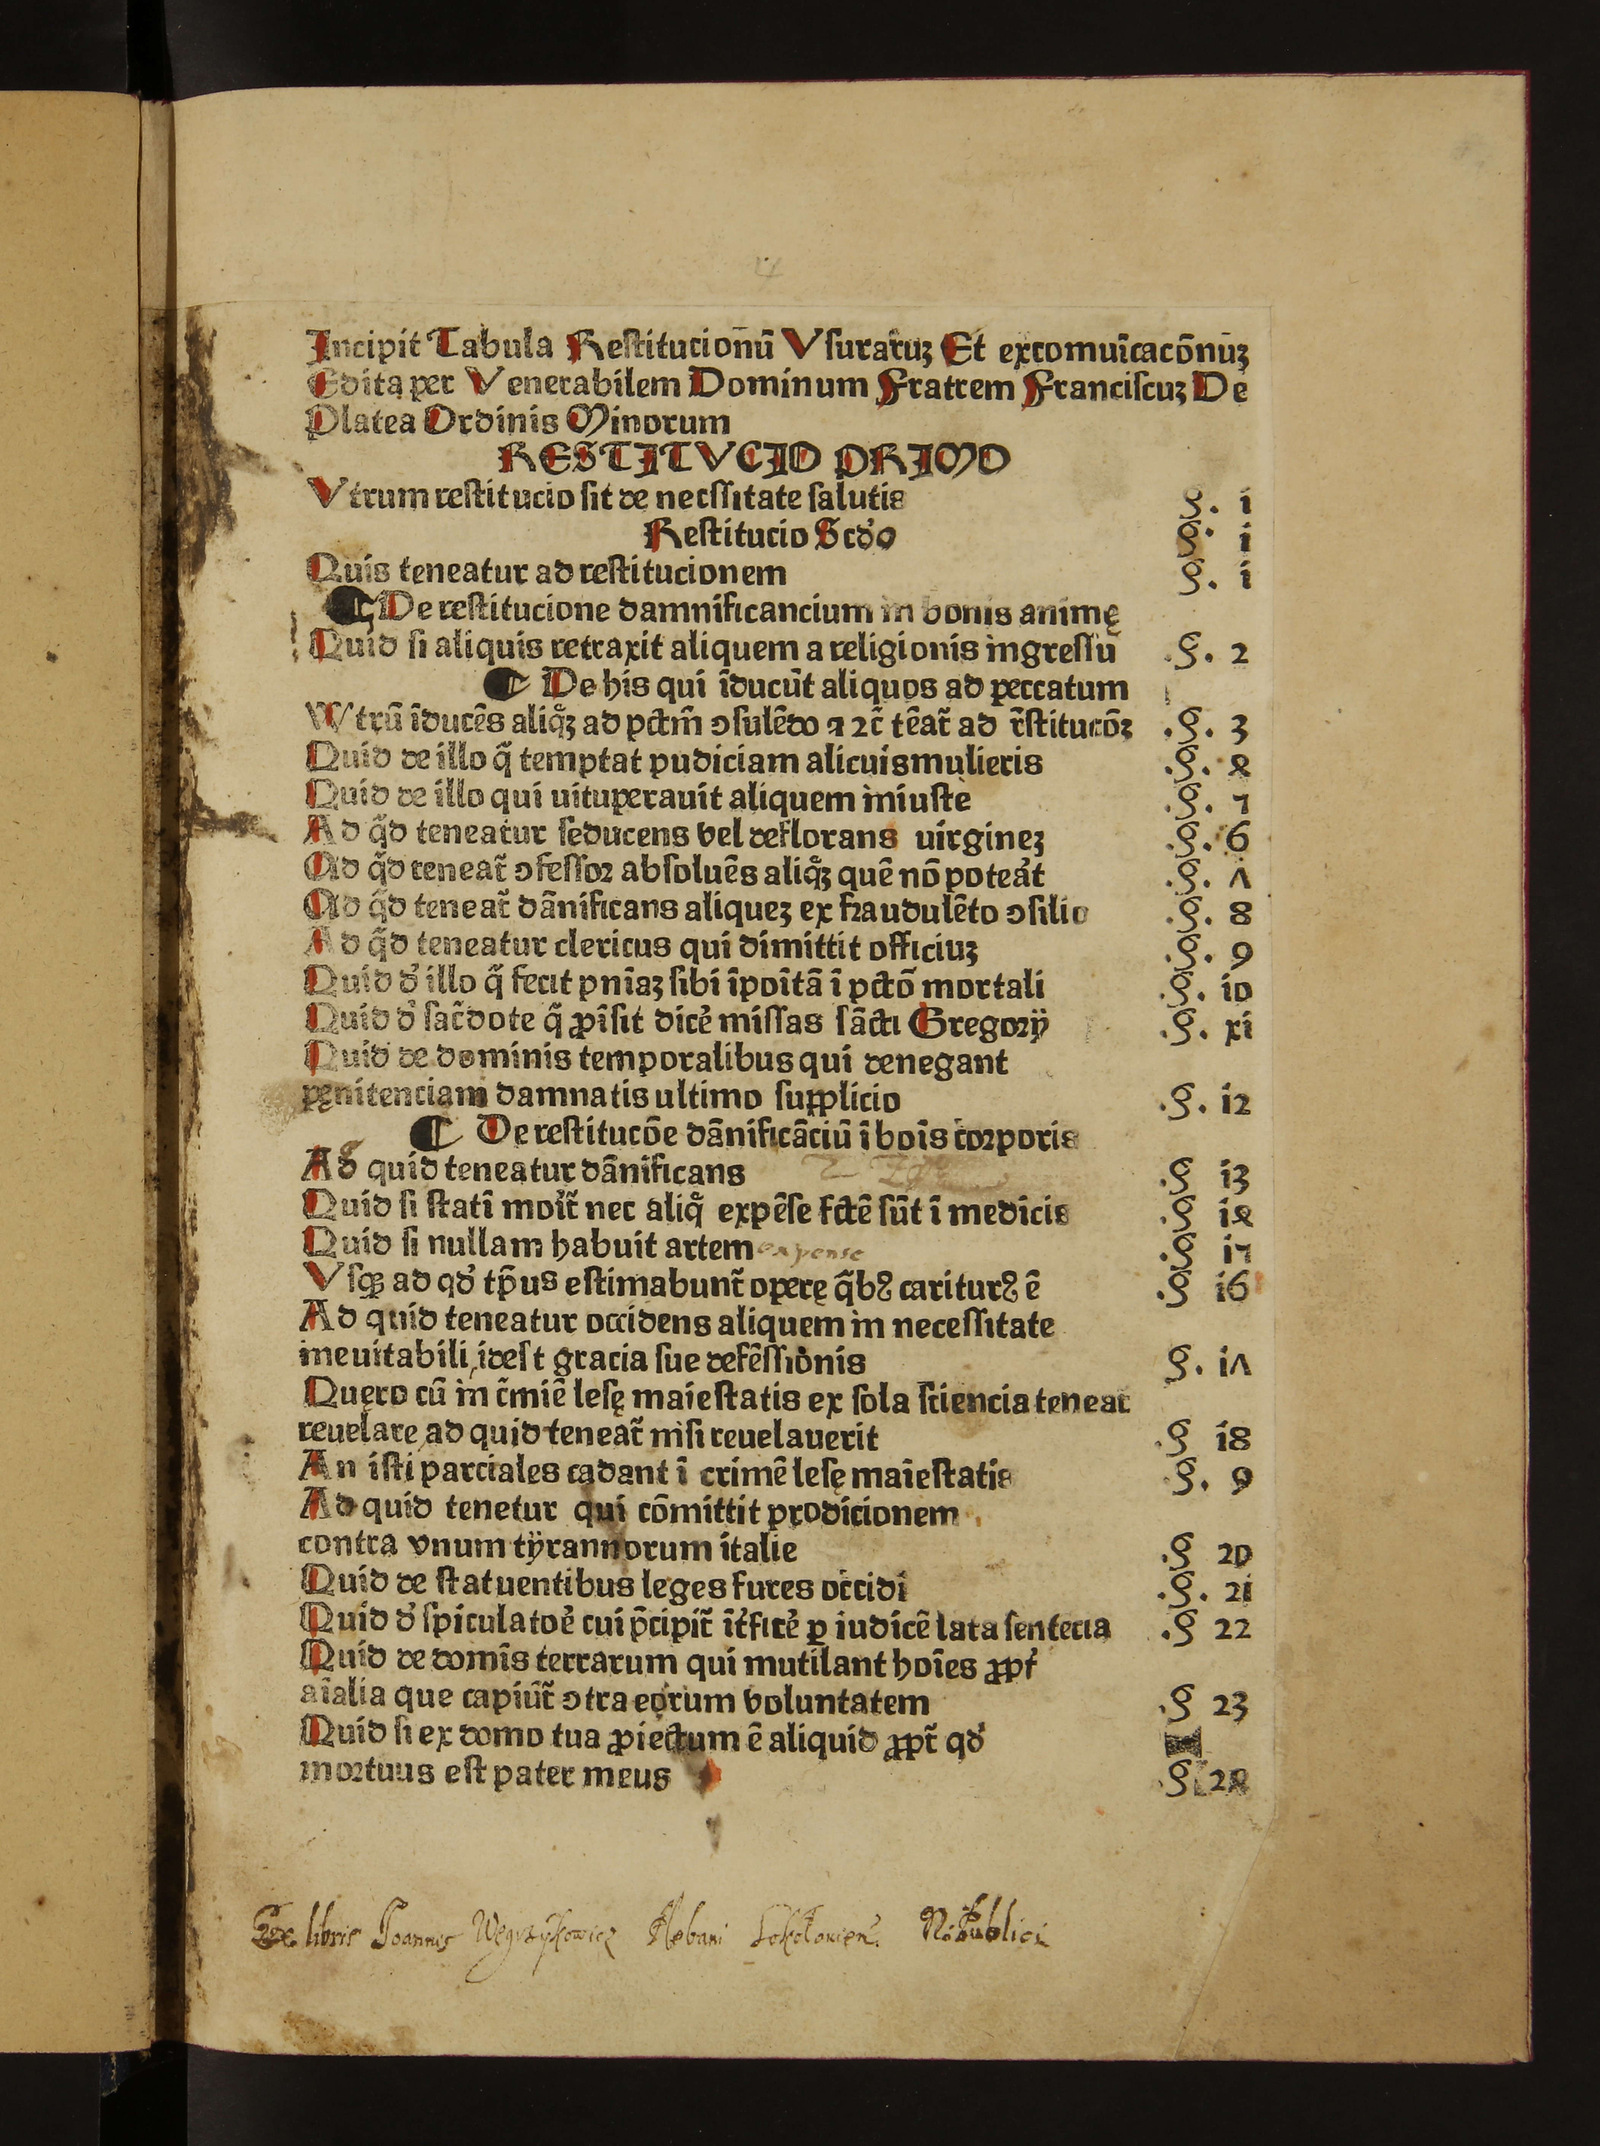 Incipit Tabula Restitucionū Vsuraruꝫ Et excomuīcacōnuꝫ
Edita per Venerabilem Dominum Fratrem Franciscuꝫ De
Platea Ordinis Minorum
RESTITVCIO PRIMO
Vtrum restitucio sit de necssitate salutis §. i
Restitucio Scd'o §. i
Quis teneatur ad restitucionem §. i
De restitucione damnificancium in bonis animę
Quid si aliquis retraxit aliquem a religionis ingressu .§. 2
De his qui īducūt aliquos ad peccatum
Vtrū īducēs aliqꝫ ad pctm̄ ɔsulēdo ⁊ 2c̄ tēat̄ ad r̄stitucōꝫ .§. 3
Quid de illo q̄ temptat pudiciam alicuis mulieris .§. 4
Quid de illo qui uituperauit aliquem iniuste .§. 5
Ad q̄d teneatur seducens vel deflorans uirgineꝫ .§. 6
Ad q̄d teneat̄ ɔfessor absoluēs aliqꝫ quē nō poteāt .§. 7
Ad q̄d teneat̄ dānificans aliqueꝫ ex fraudulēto ɔsilio .§. 8
Ad q̄d teneatur clericus qui dimittit officiuꝫ .§. 9
Quid d' illo q̄ fecit pnīaꝫ sibi īpoītā ī pctō mortali .§. i0
Quid d' sac̄dote q̄ ꝓīsit dicē missas sācti Gregorÿ .§. xi
Quid de dominis temporalibus qui denegant
pęnitenciam damnatis ultimo supplicio .§. i2
De restitucōe dānificāciū ī boīs corporis
Ad quid teneatur dānificans .§ i3
Quid si statī moīt̄ nec aliq̄ expēse fctē sūt ī medicis .§ i4
Quid si nullam habuit artem expense .§ i5
Vsqꝫ ad qd' tp̄us estimabunt̄ operę q̄bꝫ cariturꝫ ē .§ i6
Ad quid teneatur occidens aliquem in necessitate
ineuitabili, idest gracia sue defēssionis §. i7
Quęro cū in c̄miē lesę maiestatis ex sola sciencia teneat
reuelare, ad quid teneat̄ nisi reuelauerit .§ i8
An isti parciales cadant ī crimē lesę maiestatis §. 9
Ad quid tenetur qui cōmittit prodicionem
contra vnum tÿrannorum italie .§ 20
Quid de statuentibus leges fures occidi .§. 2i
Quid d' spiculatoē cui p̄cipit̄ īt̄ficē ꝑ iudicē lata sentecia .§ 22
Quid de domīs terrarum qui mutilant hoīes ꝓpt̄
aīalia que capiūt̄ ɔtra eorum voluntatem .§ 23
Quid si ex domo tua ꝓiectum ē aliquid ꝓpt̄ qd'
mortuus est pater meus .§. 24
Ex libris Joannis Węgrzykowicz Urbani N. Publici